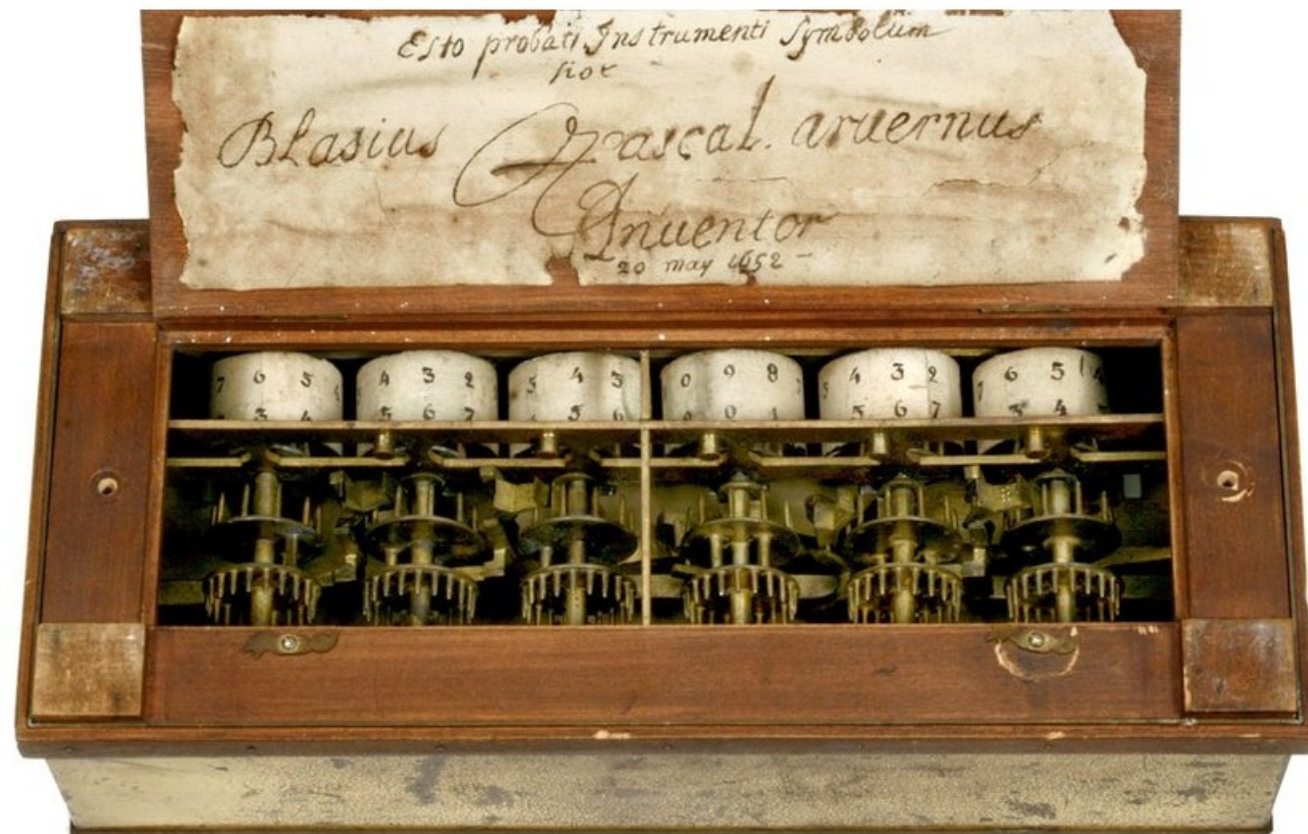 Esto probati Instrumenti Symbolum
hoc
Blasius Pascal. aruernus
Inuentor
20 may 1652 -
7 6 5
4 3 2
5 4 3
0 9 8
5 4 3 2
7 6 5 4
3 4
5 6 7
5 6
0 1
5 6 7
3 4